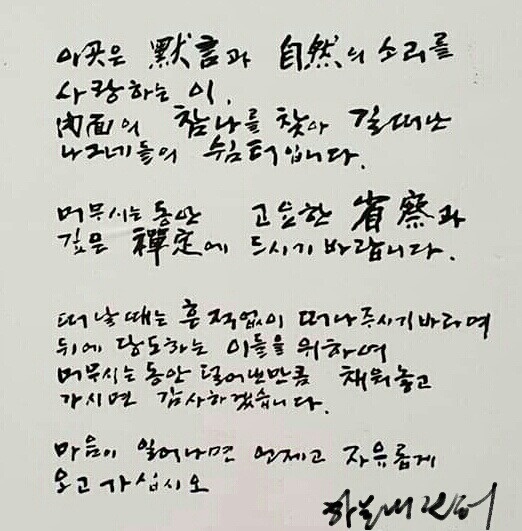 이곳은 默言과 自然의 소리를
사랑하는 이,
內面의 참나를 찾아 길떠난
나그네들의 쉼터입니다.
머무시는동안 고요한 省察과
깊은 禪定에 드시기 바랍니다.
떠날때는 흔적없이 떠나주시기바라며
뒤에 당도하는 이들을 위하여
머무시는동안 덜어낸만큼 채워놓고
가시면 감사하겠습니다.
마음이 일어나면 언제고 자유롭게
오고가십시오